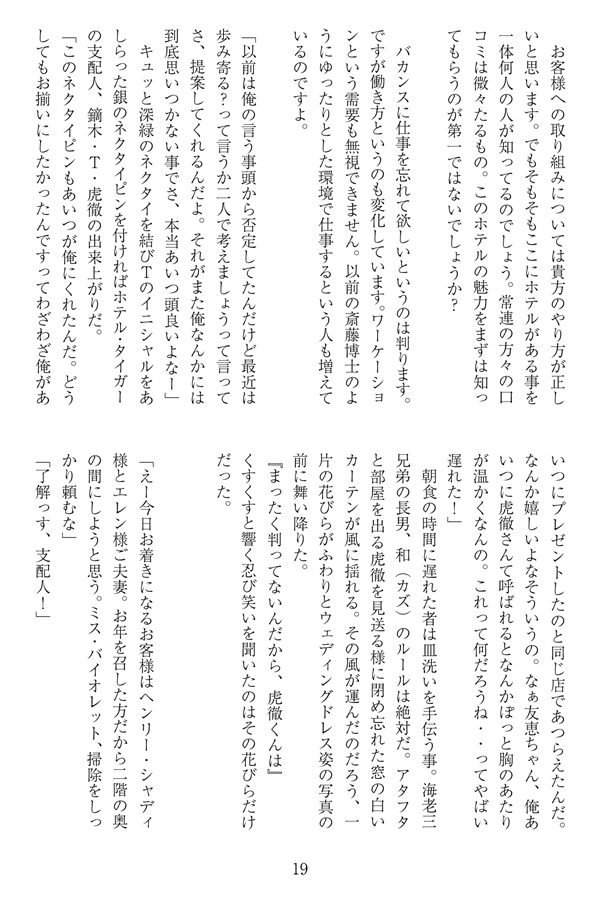 お客様への取り組みについては貴方のやり方が正し
いと思います。でもそもそもここにホテルがある事を
一体何人の人が知ってるのでしょう。常連の方々の口
コミは微々たるもの。このホテルの魅力をまずは知っ
てもらうのが第一ではないでしょうか？
　バカンスに仕事を忘れて欲しいというのは判ります。
ですが働き方というのも変化しています。ワーケーショ
ンという需要も無視できません。以前の斎藤博士のよ
うにゆったりとした環境で仕事するという人も増えて
いるのですよ。
「以前は俺の言う事頭から否定してたんだけど最近は
歩み寄る？って言うか二人で考えましょうって言って
さ、提案してくれるんだよ。それがまた俺なんかには
到底思いつかない事でさ、本当あいつ頭良いよなー」
　キュッと深緑のネクタイを結びＴのイニシャルをあ
しらった銀のネクタイピンを付ければホテル・タイガー
の支配人、鏑木・Ｔ・虎徹の出来上がりだ。
「このネクタイピンもあいつが俺にくれたんだ。どう
してもお揃いにしたかったんですってわざわざ俺があ
いつにプレゼントしたのと同じ店であつらえたんだ。
なんか嬉しいよなそういうの。なぁ友恵ちゃん、俺あ
いつに虎徹さんて呼ばれるとなんかぽっと胸のあたり
が温かくなんの。これって何だろうね・・ってやばい
遅れた！」
　朝食の時間に遅れた者は皿洗いを手伝う事。海老三
兄弟の長男、和（カズ）のルールは絶対だ。アタフタ
と部屋を出る虎徹を見送る様に閉め忘れた窓の白い
カーテンが風に揺れる。その風が運んだのだろう、一
片の花びらがふわりとウェディングドレス姿の写真の
前に舞い降りた。
『まったく判ってないんだから、虎徹くんは』
くすくすと響く忍び笑いを聞いたのはその花びらだけ
だった。
「えー今日お着きになるお客様はヘンリー・シャディ
様とエレン様ご夫妻。お年を召した方だから二階の奥
の間にしようと思う。ミス・バイオレット、掃除をしっ
かり頼むな」
「了解っす、支配人！」
19